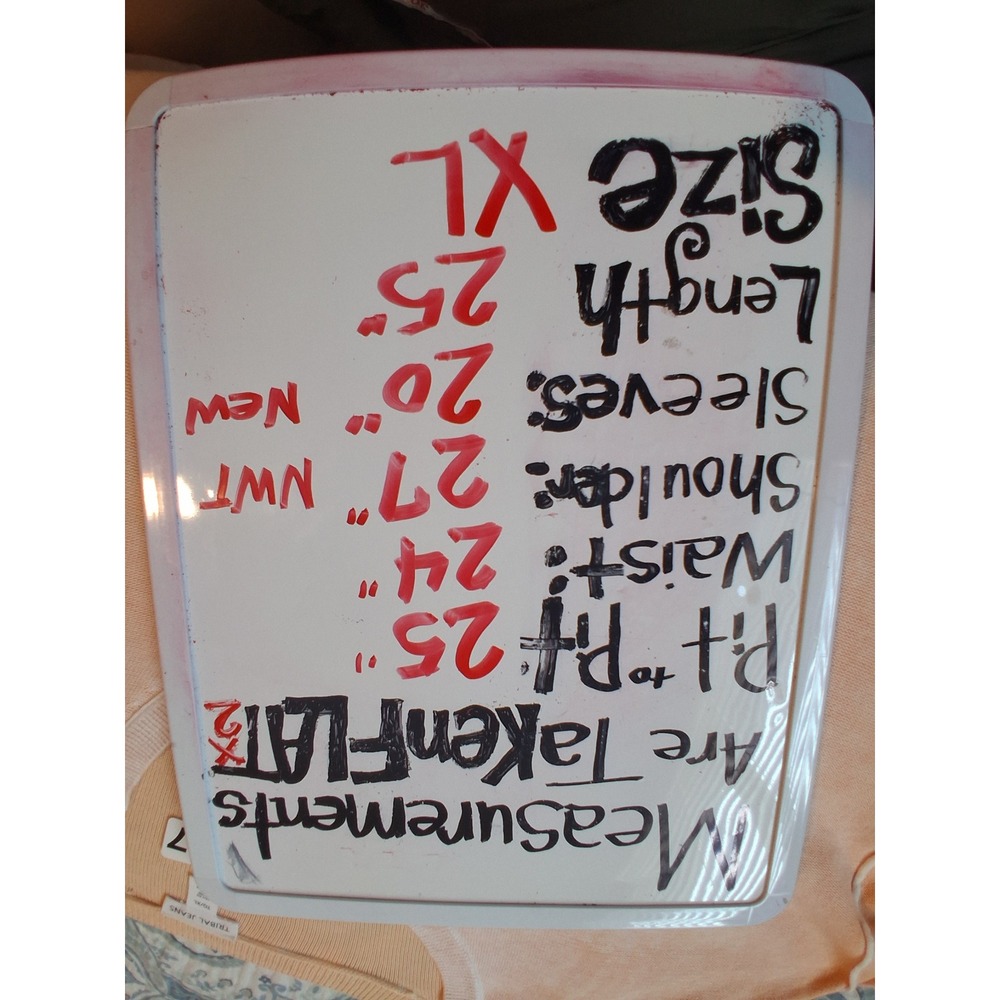 Measurements
Are Taken FLAT x2
Pit to Pit 25"
Waist: 24"
Shoulder: 27" NWT
Sleeves: 20" New
Length 25"
Size XL
TRIBAL JEANS